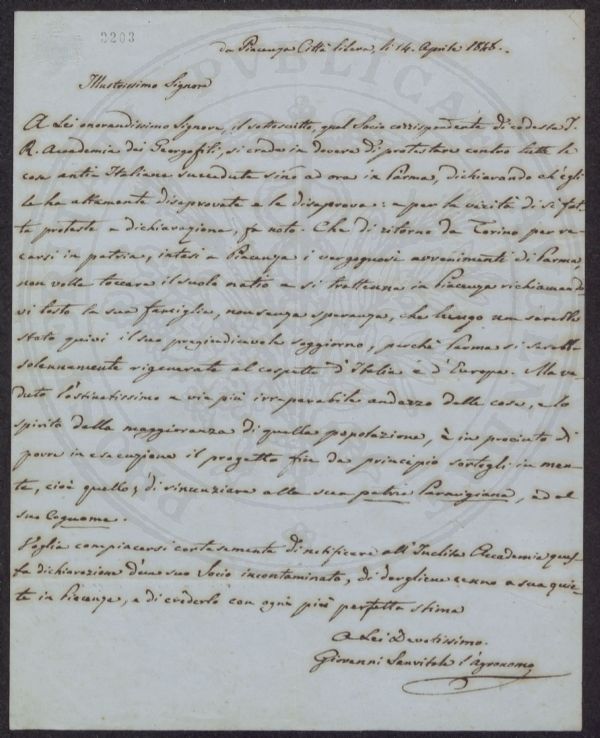 2203
da Piacenza Città libera, li 14. Aprile 1848.
Illustrissimo Signore
A Lei onorandissimo Signore, il sottoscritto, qual Socio corrispondente di codesta I.
R. Accademia dei Georgofili, si crede in dovere di protestare contro tutte le
cose antia Italiane succedute sino ad ora in Parma, dichiarando ch'egli
le ha altamente disaprovate e le disaprova: e per la verità di sì fat-
te proteste e dichiarazione, fa noto. Che di ritorno da Torino per re-
carsi in patria, intesi a Piacenza i vergognosi avvenimenti di Parma,
non volle toccare il suolo natio e si trattenne in Piacenza richiamando
vi tosto la sua famiglia, non senza speranza, che lungo non sarebbe
stato quivi il suo pregiudicevole soggiorno, perchè Parma si sarebbe
solennamente rigenerata al cospetto d'Italia e d'Europa. Ma ve-
duto l'ostinatissimo e via più irreparabile andazzo delle cose, e lo
spirito della maggioranza di quella popolazione, è in procinto di
porre in esecuzione il progetto fin da principio sortogli in men-
te, cioè quello, di rinunziare alla sua patria Parmigiana, ed al
suo Cognome.
Voglia compiacersi cortesemente di notificare all'Inclita Accademia ques-
ta dichiarazione d'un suo Socio incontaminato, di dargliene cenno a sua quie-
te in Piacenza, e di crederlo con ogni più perfetta stima
A Lei Devotissimo.
Giovanni Sanvitale l'Agronomo